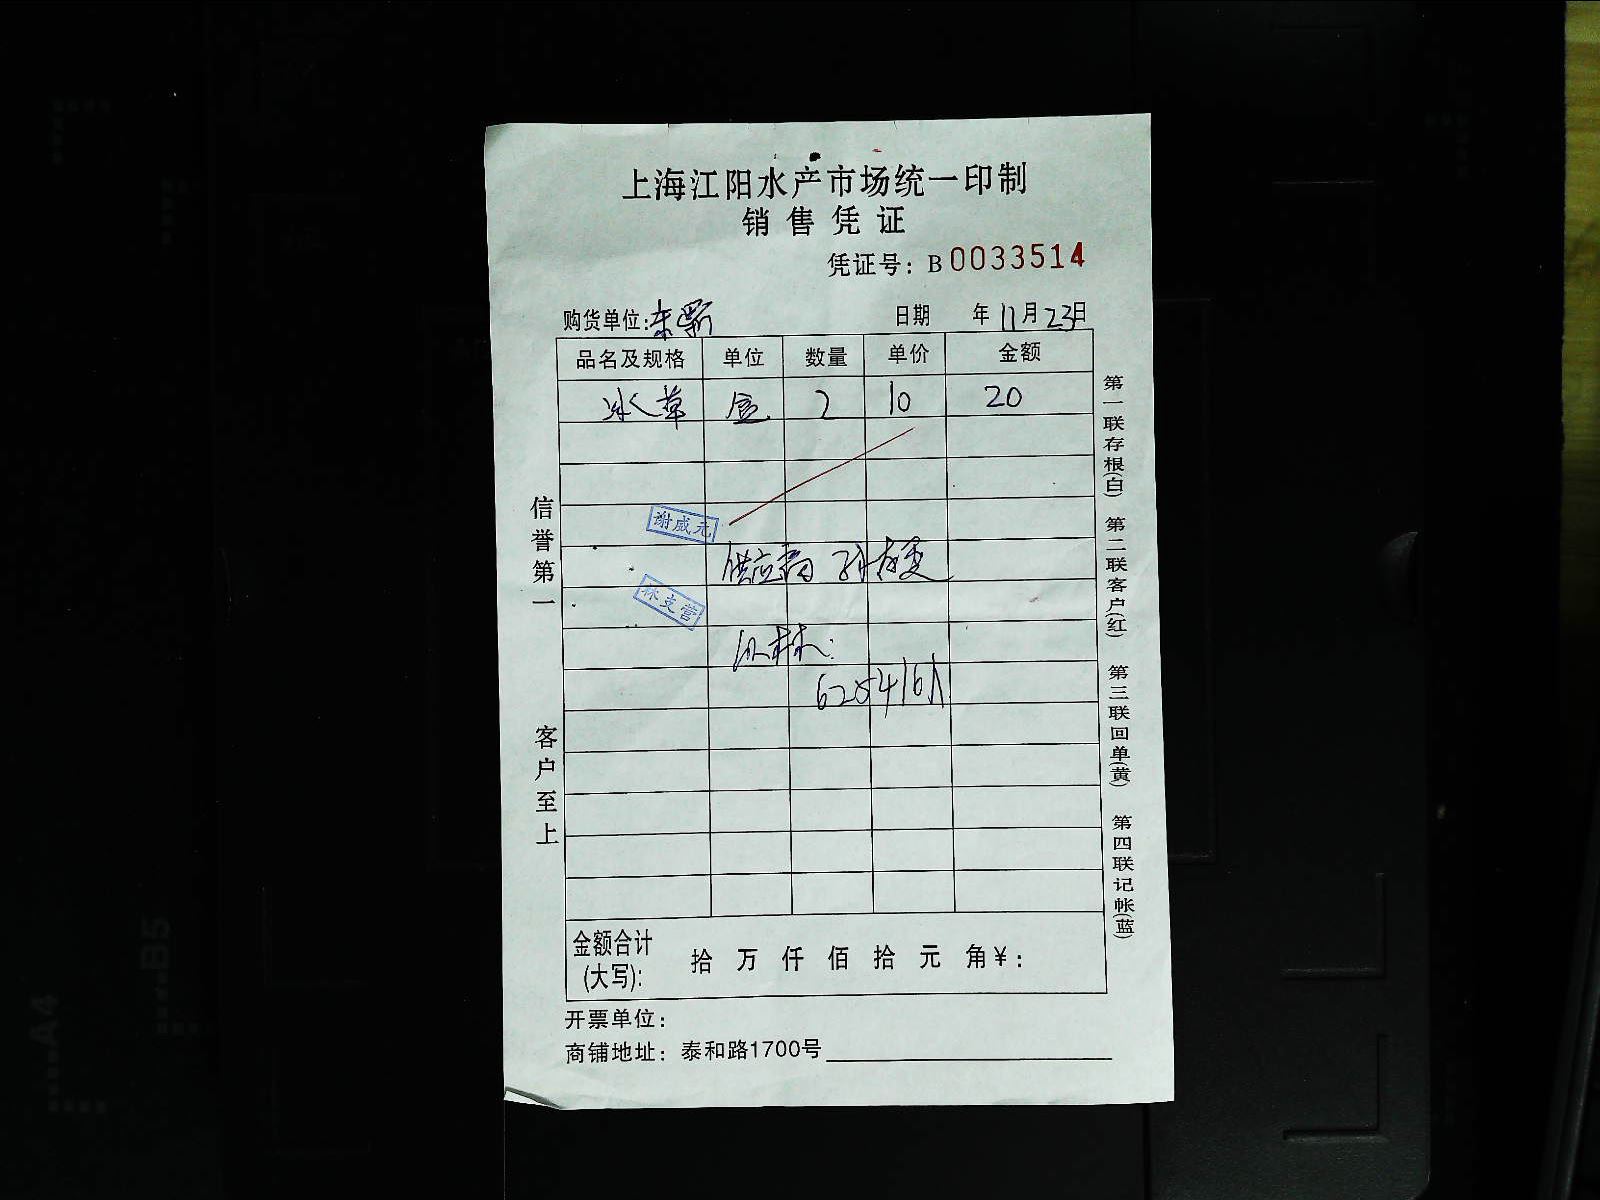 上海江阳水产市场统一印制
销售凭证
凭证号：B0033514
购货单位: 日期 年11月23日
品名及规格 单位 数量 单价 金额
冰草 盒 2 10 20
谢威元
供应商 孙
林支营
6254161
金额合计
(大写): 拾 万 仟 佰 拾 元 角¥：
开票单位：
商铺地址：泰和路1700号
信誉第一
客户至上
第一联存根(白)
第二联客户(红)
第三联回单(黄)
第四联记帐(蓝)
A4
B5